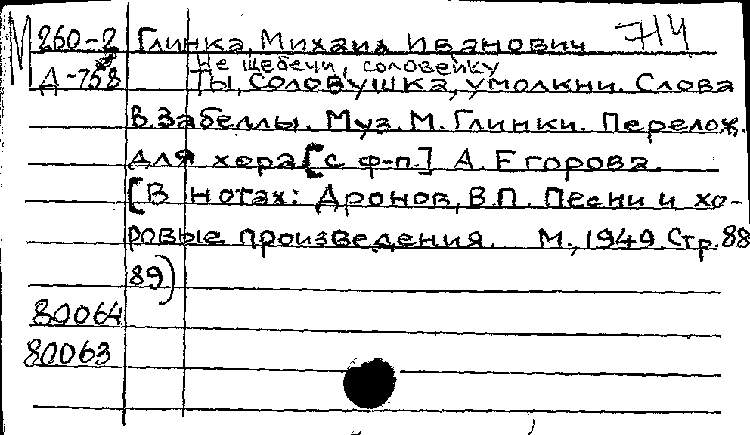 М 260-2 Глинка, Михаил Иванович
Не щебечи, соловейку
Д-758 Ты, соловушка, умолкни. Слова
В. Забеллы. Муз. М. Глинки. Перелож.
для хора [с ф-п.] А. Егорова.
[В нотах: Дронов, В.П. Песни и хо-
ровые произведения. М., 1949 Стр. 88
89)
80064
80063